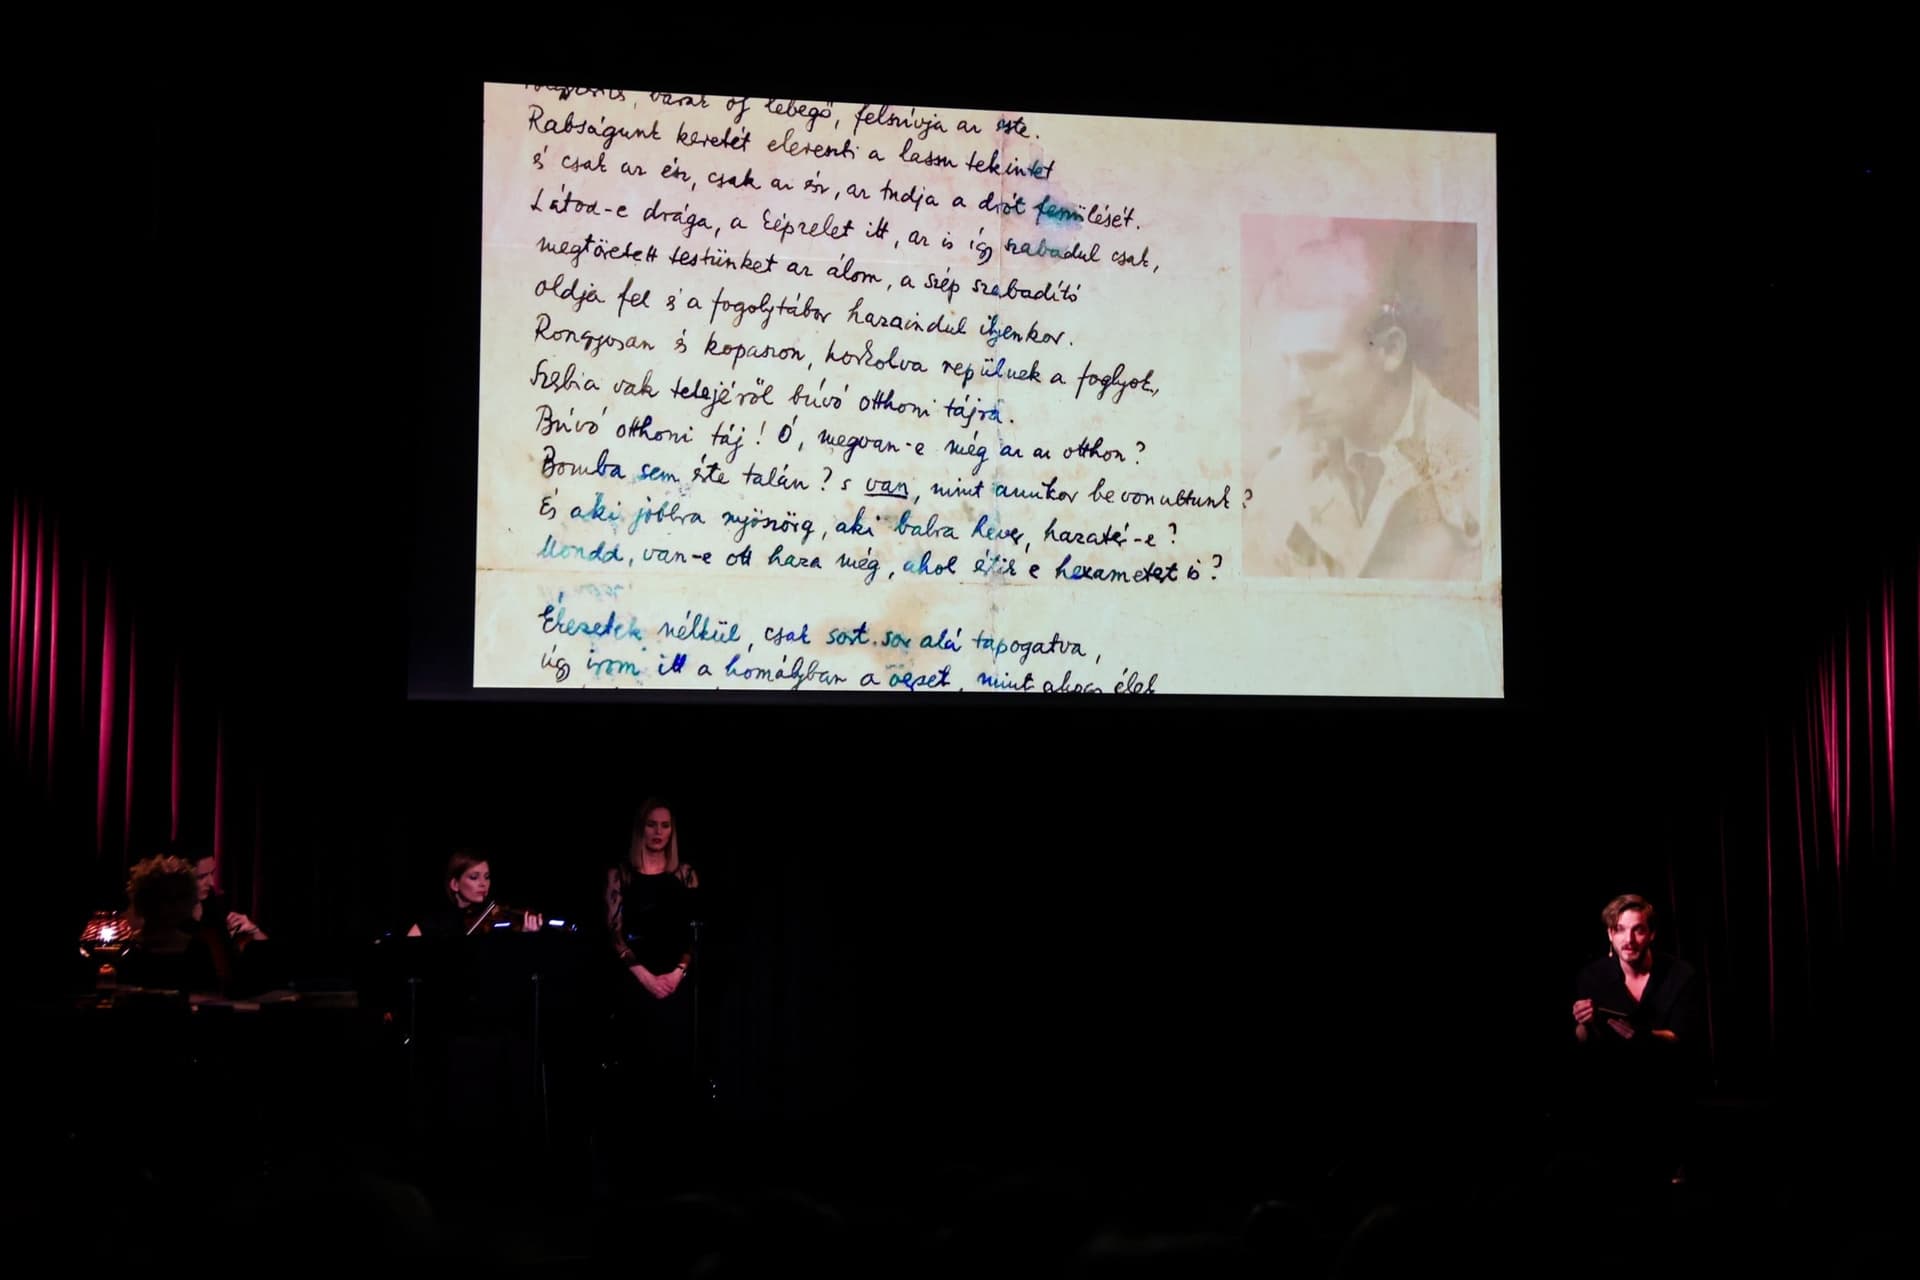 barak oly lebegő, felszívja az este.
Rabságunk keretét elereszti a lassu tekintet
és csak az ész, csak az ész, az tudja a drót feszülését.
Látod-e drága, a képzelet itt, az is így szabadul csak,
megtöretett testünket az álom, a szép szabadító
oldja fel és a fogolytábor hazaindul ilyenkor.
Rongyosan és kopaszon, horkolva repülnek a foglyok,
Szerbia vak tetejéről búvó otthoni tájra.
Búvó otthoni táj! Ó, megvan-e még az az otthon?
Bomba sem érte talán? s van, mint amikor bevonultunk?
És aki jobbra nyöszörg, aki balra hever, hazatér-e?
Mondd, van-e ott haza még, ahol értik e hexametert is?
Ékezetek nélkül, csak sort sor alá tapogatva,
úgy irom itt a homályban a verset, mint ahogy élek